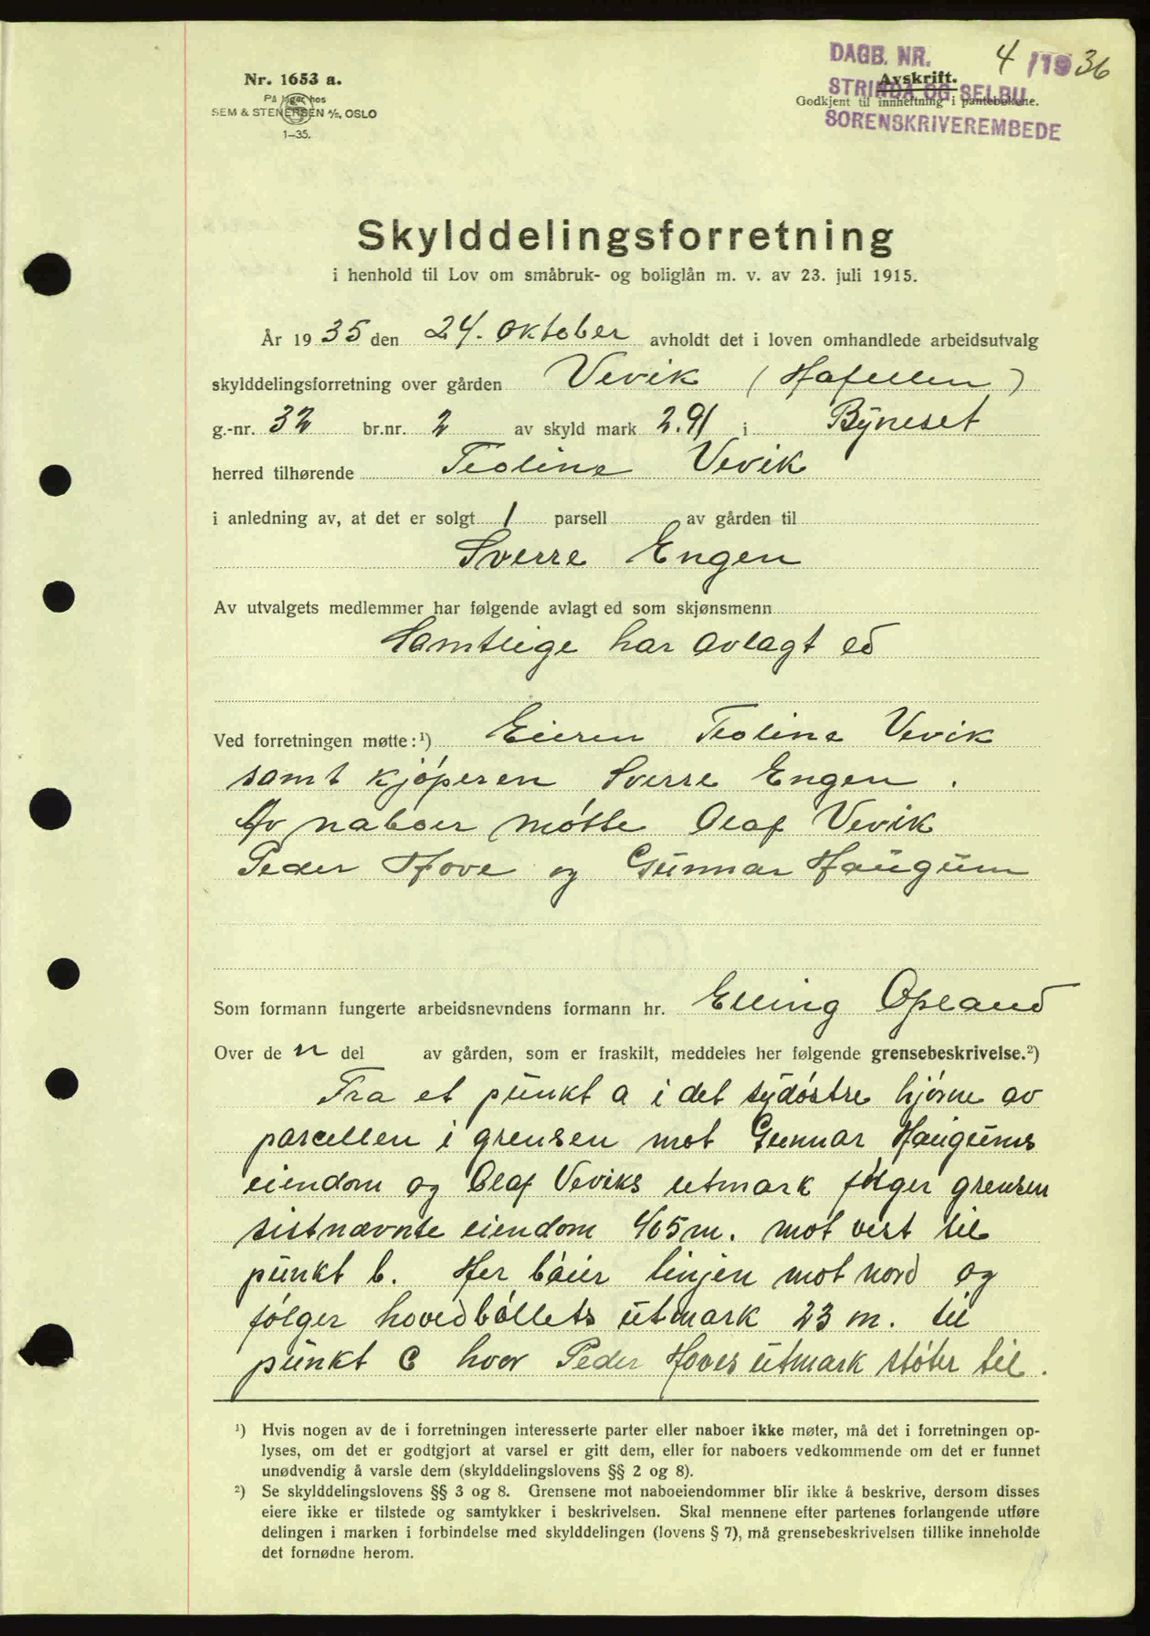 Nr. 1653 a.
På lager hos
SEM & STENERSEN A/S, OSLO
1—35.
DAGB. NR. 4/1936
STRINDA OG SELBU
SORENSKRIVEREMBEDE
Avskrift.
Godkjent til innheftning i pantebøkene.
Skylddelingsforretning
i henhold til Lov om småbruk- og boliglån m. v. av 23. juli 1915.
År 1935 den 24. Oktober avholdt det i loven omhandlede arbeidsutvalg
skylddelingsforretning over gården Vevik (Hafellen)
g.-nr. 32 br.nr. 2 av skyld mark 2.91 i Byneset
herred tilhørende Teoline Vevik
i anledning av, at det er solgt 1 parsell av gården til
Sverre Engen
Av utvalgets medlemmer har følgende avlagt ed som skjønsmenn
Samtlige har avlagt ed
Ved forretningen møtte:¹) Eieren Teoline Vevik
samt kjøperen Sverre Engen.
Av naboer møtte Olaf Vevik
Peder Hove og Gunnar Haugum
Som formann fungerte arbeidsnevndens formann hr. Elling Opland
Over de n del av gården, som er fraskilt, meddeles her følgende grensebeskrivelse.²)
Fra et punkt a i det sydøstre hjørne av
parcellen i grensen mot Gunnar Haugums
eiendom og Olaf Veviks utmark følger grensen
sistnævnte eiendom 465 m. mot vest til
punkt b. Her bøier linjen mot nord og
følger hovedbøllets utmark 23 m. til
punkt C hvor Peder Hoves utmark støter til.
¹) Hvis nogen av de i forretningen interesserte parter eller naboer ikke møter, må det i forretningen op-
lyses, om det er godtgjort at varsel er gitt dem, eller for naboers vedkommende om det er funnet
unødvendig å varsle dem (skylddelingslovens §§ 2 og 8).
²) Se skylddelingslovens §§ 3 og 8. Grensene mot naboeiendommer blir ikke å beskrive, dersom disses
eiere ikke er tilstede og samtykker i beskrivelsen. Skal mennene efter partenes forlangende utføre
delingen i marken i forbindelse med skylddelingen (lovens § 7), må grensebeskrivelsen tillike inneholde
det fornødne herom.